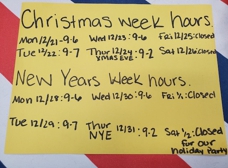 Christmas week hours.
Mon 12/21:9-6 Wed 12/23:9-6 Fri 12/25:closed
Tue 12/22:9-7 Thur 12/24:9-2 Sat 12/26:closed
XMAS EVE
New Years Week hours.
Mon 12/28:9-6 Wed 12/30:9-6 Fri 1/1:Closed
Tue 12/29:9-7 Thur 12/31:9-2 Sat 1/2:Closed
NYE for our
Holiday Party